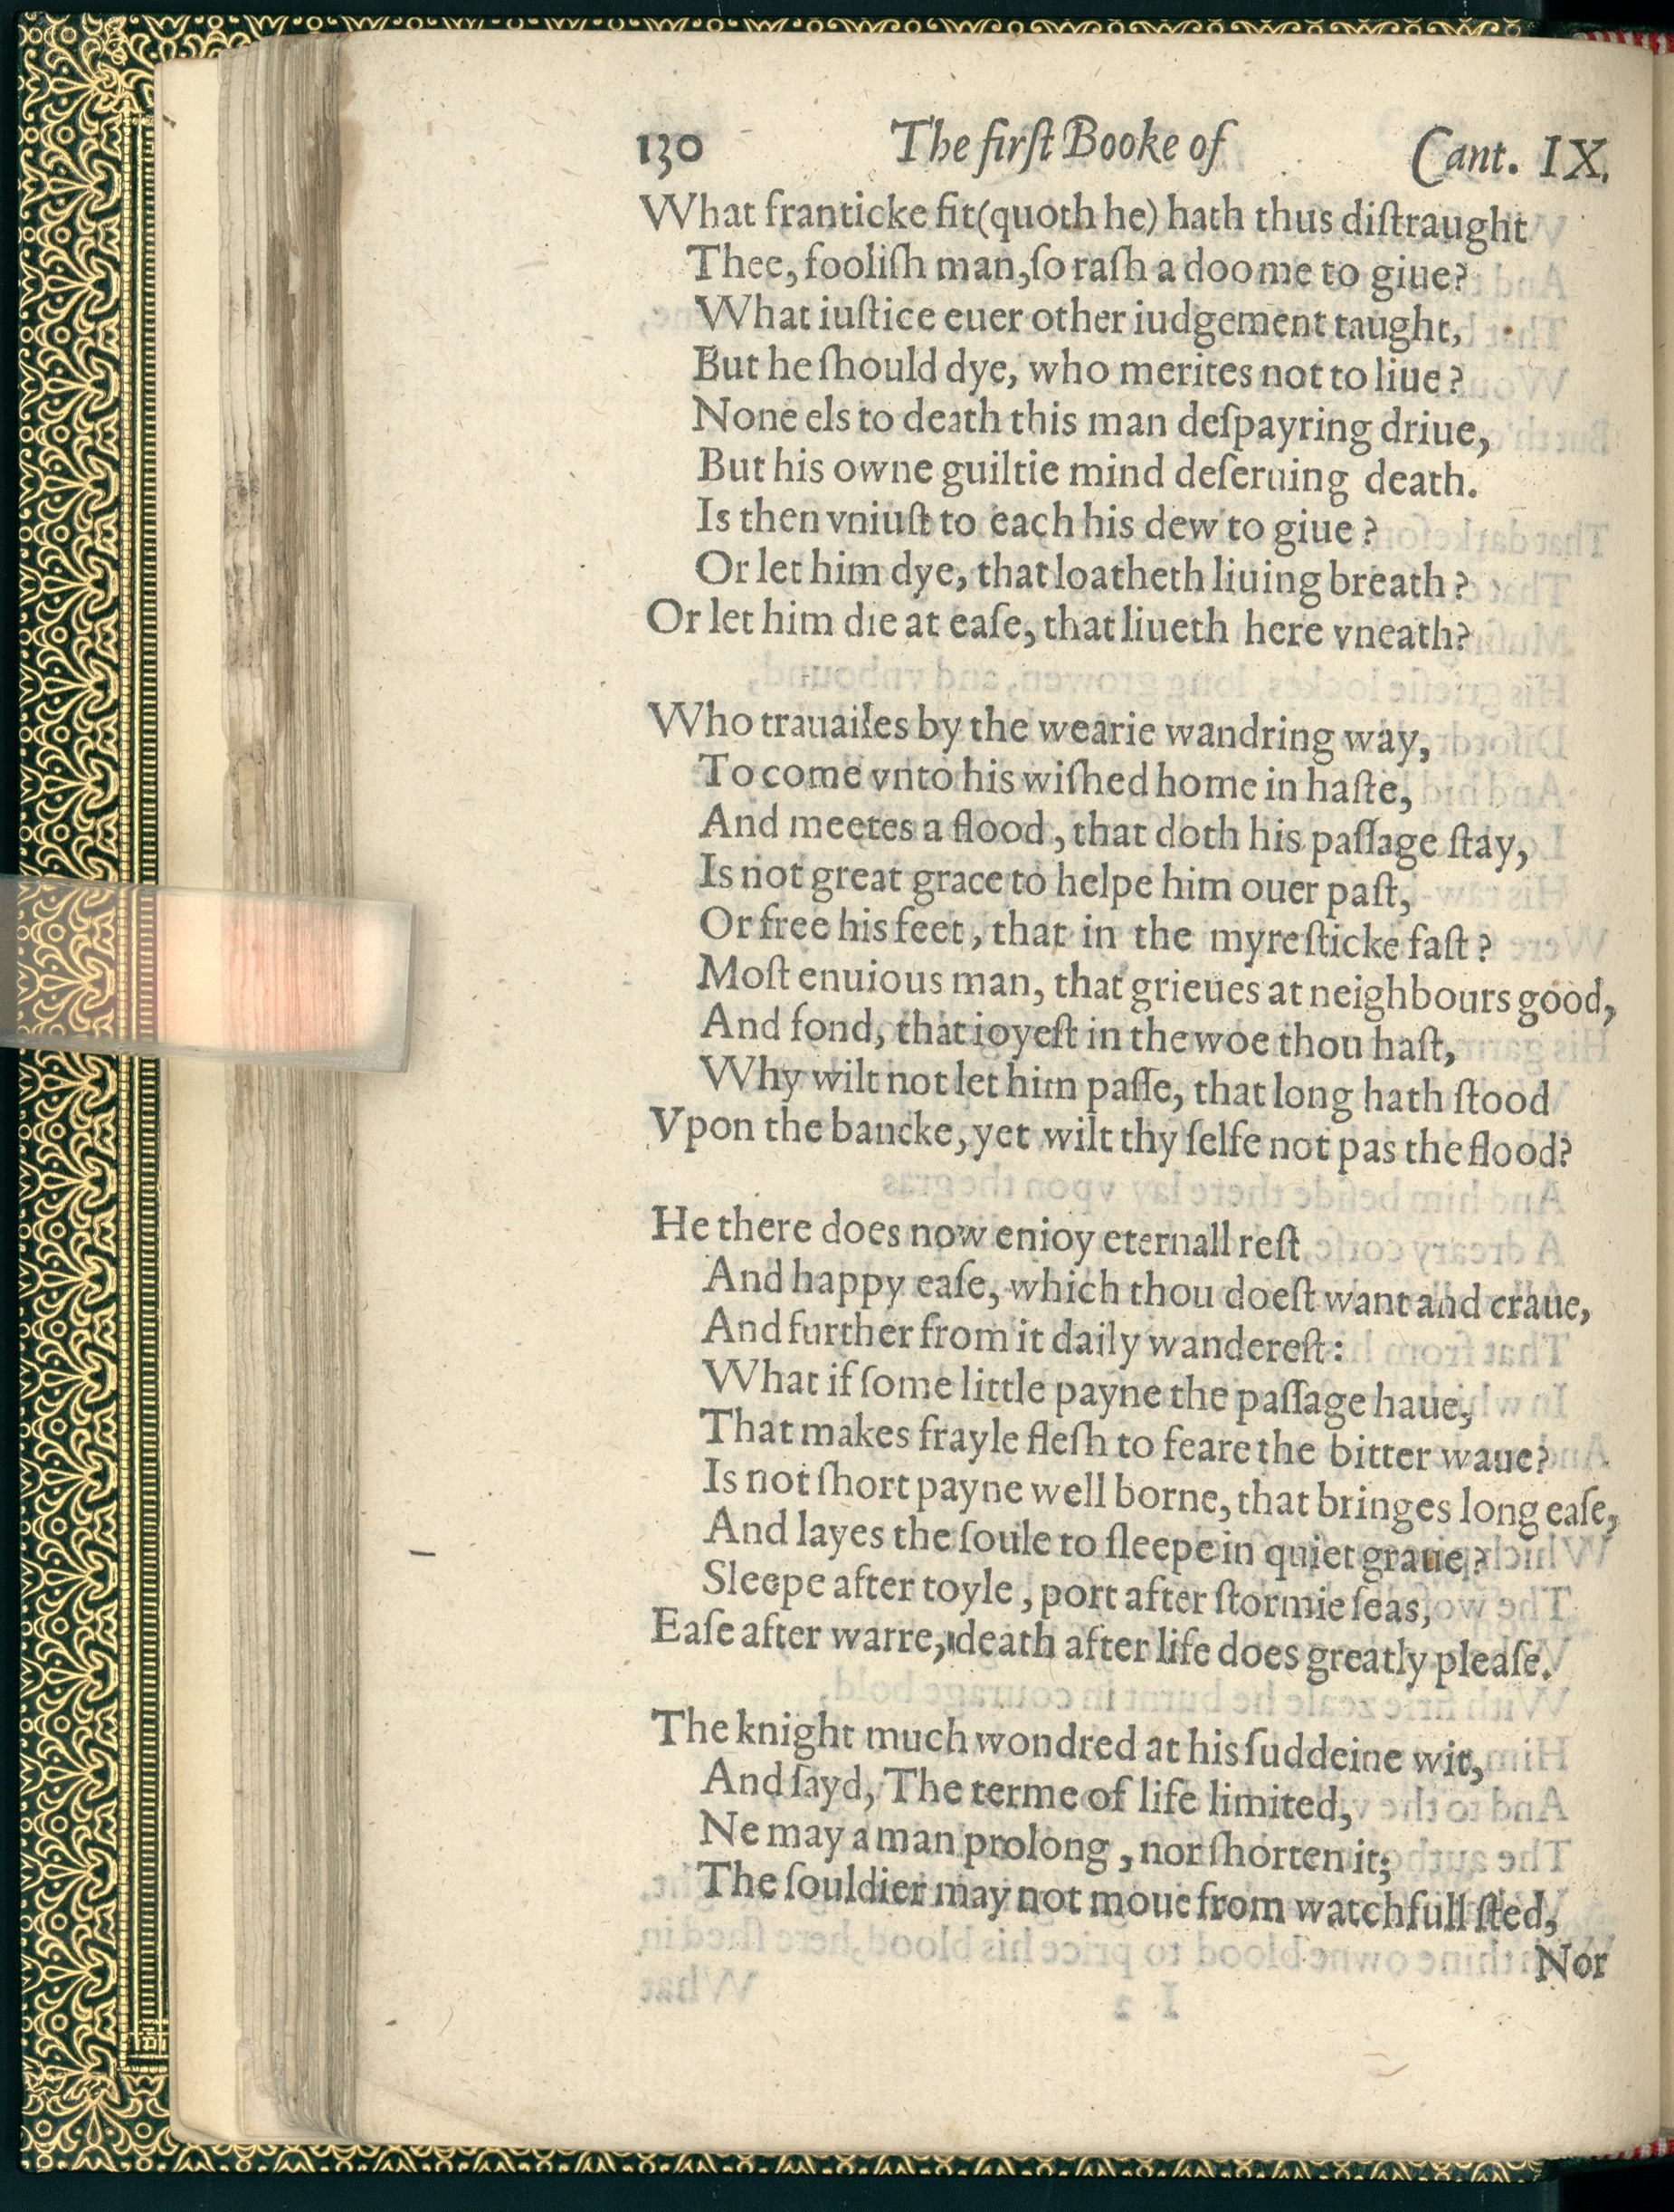 130 The firſt Booke of Cant. IX.
What franticke fit(quoth he) hath thus diſtraught
Thee, fooliſh man,ſo raſh a doome to giue?
What iuſtice euer other iudgement taught,
But he ſhould dye, who merites not to liue?
None els to death this man deſpayring driue,
But his owne guiltie mind deſeruing death.
Is then vniuſt to each his dew to giue?
Or let him dye, that loatheth liuing breath?
Or let him die at eaſe, that liueth here vneath?
Who trauailes by the wearie wandring way,
To come vnto his wiſhed home in haſte,
And meetes a flood, that doth his paſſage ſtay,
Is not great grace to helpe him ouer paſt,
Or free his feet, that in the myre ſticke faſt?
Moſt enuious man, that grieues at neighbours good,
And fond, that ioyeſt in the woe thou haſt,
Why wilt not let him paſſe, that long hath ſtood
Vpon the bancke, yet wilt thy ſelfe not pas the flood?
He there does now enioy eternall reſt
And happy eaſe, which thou doeſt want and craue,
And further from it daily wandereſt:
What if ſome little payne the paſſage haue,
That makes frayle fleſh to feare the bitter waue?
Is not ſhort payne well borne, that bringes long eaſe,
And layes the ſoule to ſleepe in quiet graue?
Sleepe after toyle, port after ſtormie ſeas,
Eaſe after warre, death after life does greatly pleaſe.
The knight much wondred at his ſuddeine wit,
And ſayd, The terme of life limited,
Ne may a man prolong, nor ſhorten it;
The ſouldier may not moue from watchfull ſted,
Nor